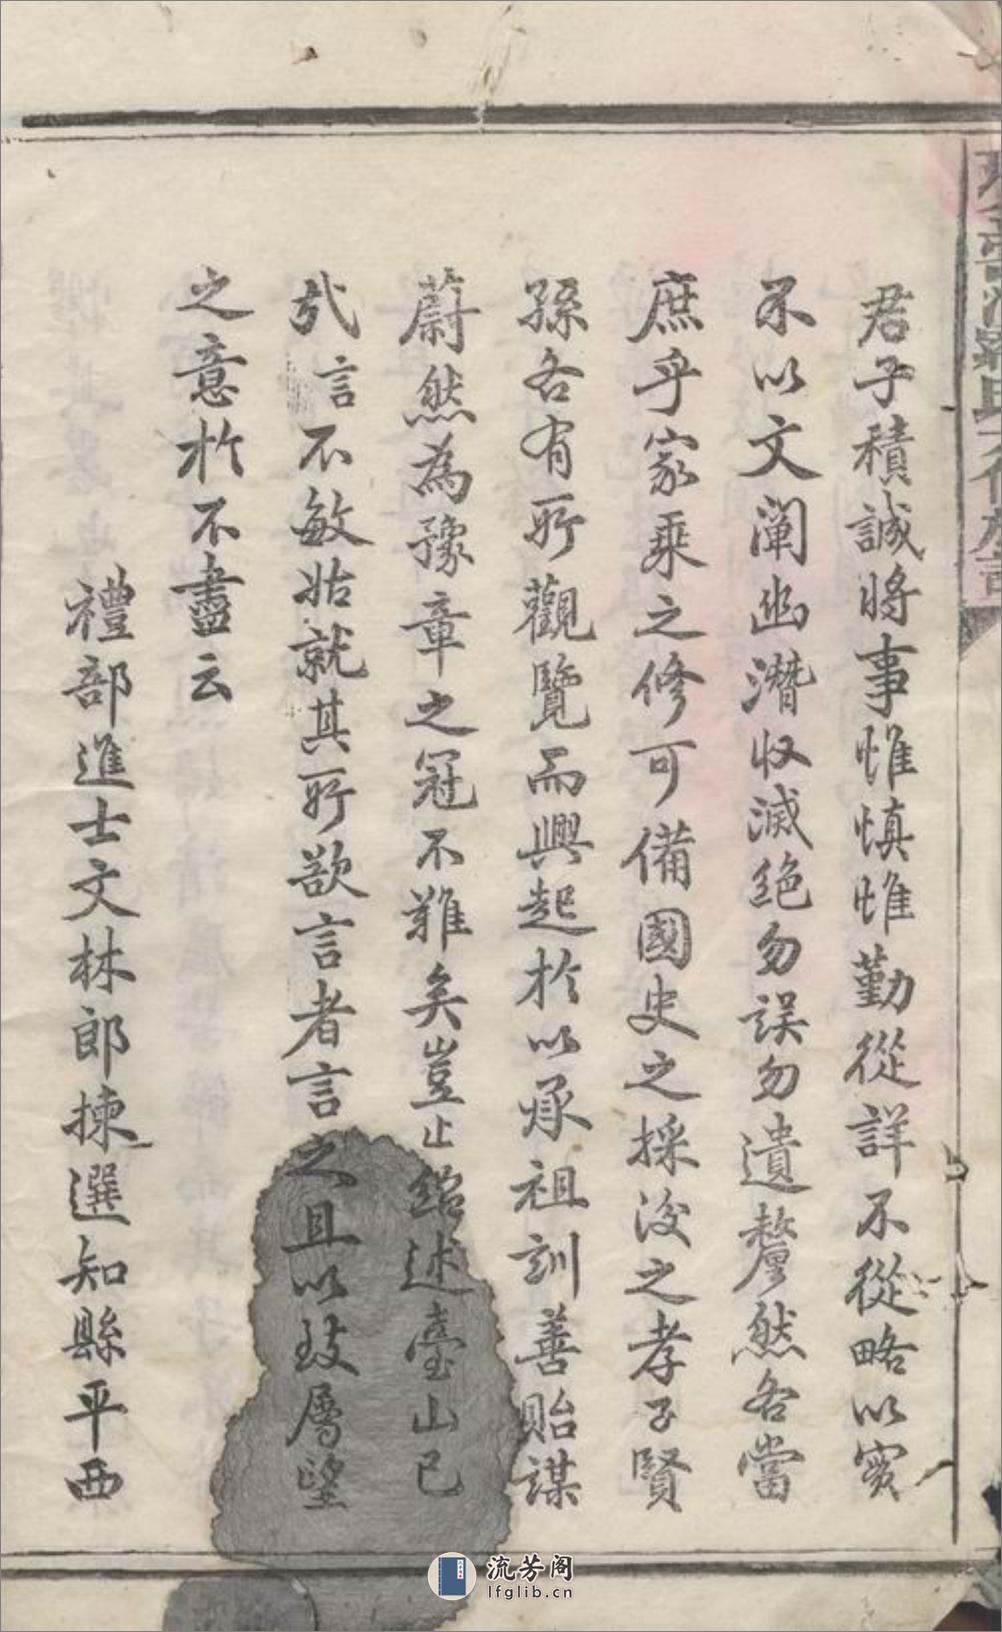 君子積誠將事惟慎惟勤從詳不從略以實
不以文闡幽潛收滅絕勿誤勿遺釐然各當
庶乎家乘之修可備國史之採後之孝子賢
孫各有所觀覽而興起於以承祖訓善貽謀
蔚然為豫章之冠不難矣豈止紹述臺山已
哉言不敏姑就其所欲言者言之且以致屬望
之意於不盡云
禮部進士文林郎揀選知縣平西
流芳阁
lfglib.cn